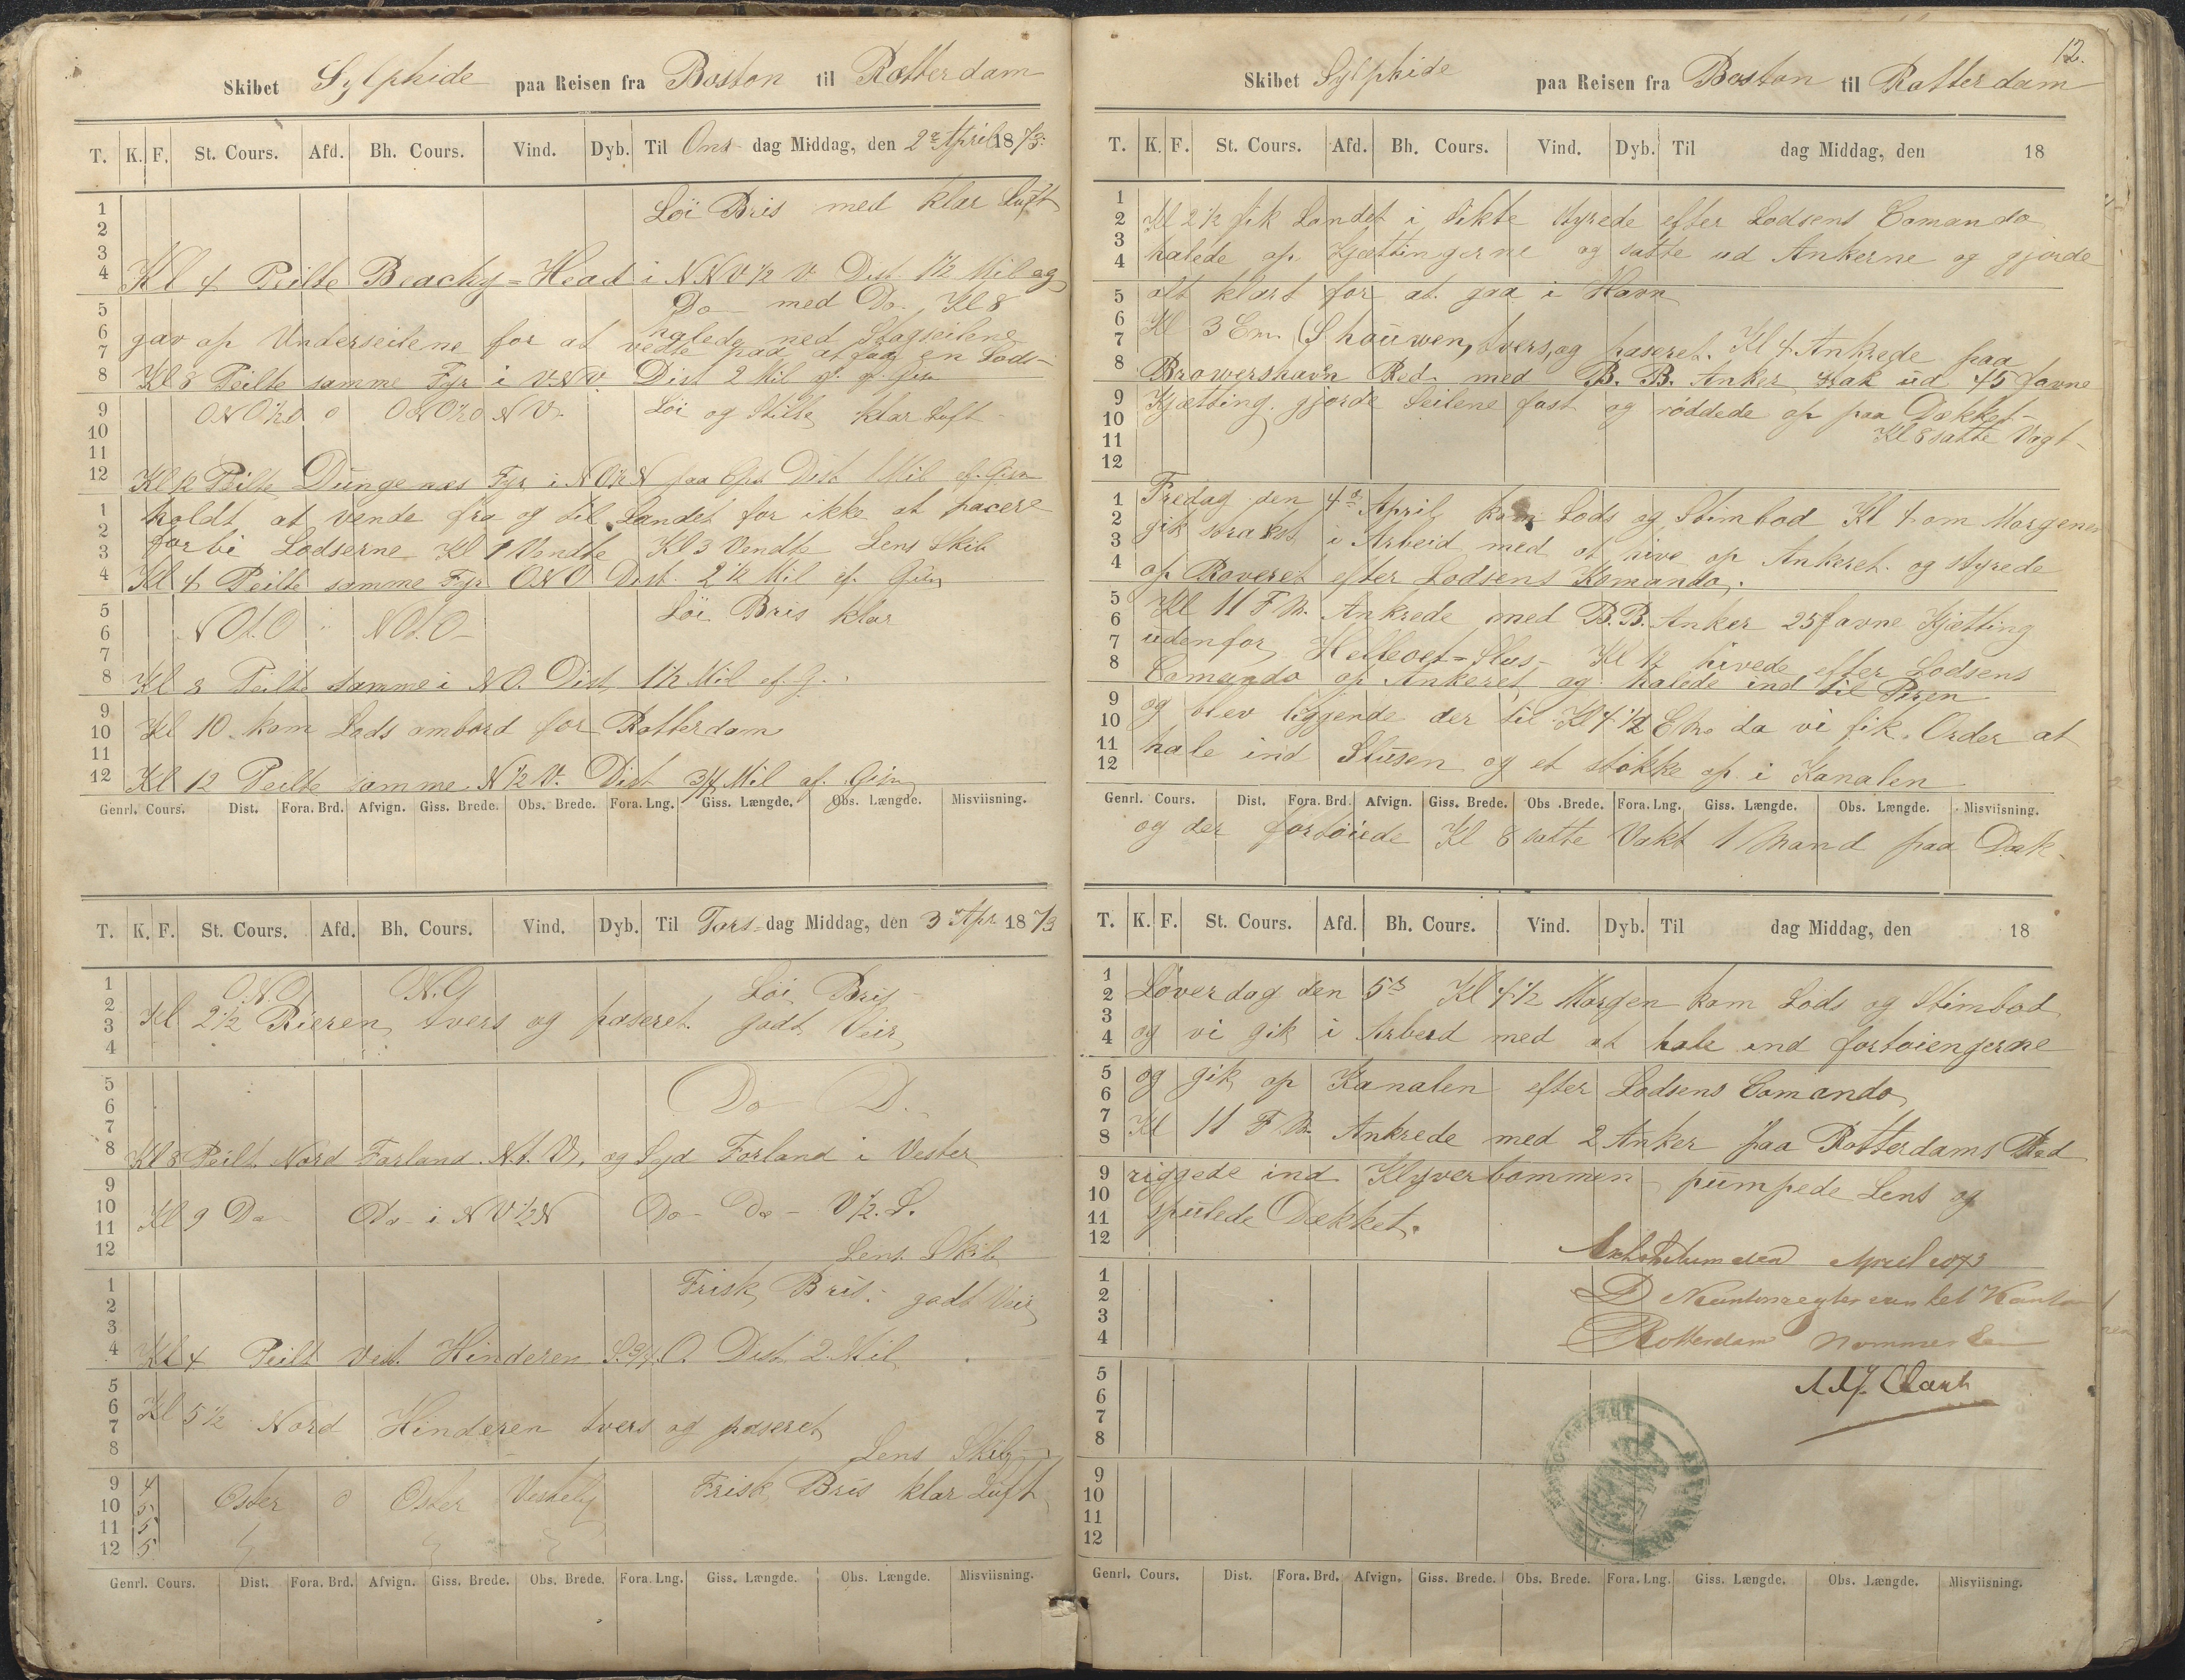 Skibet Sylphide paa Reisen fra Boston til Rotterdam
T. K. F. St. Cours. Afd. Bh. Cours. Vind. Dyb. Til Ons dag Middag, den 2d April 1873.
1
2
3
4
Löi Bris med klar Luft
Kl 4 Peilte Beachy=Head i NNV 1/2 V Dist 1 1/2 Mil og
5
6
7
8
Do med Do Kl 8
halede ned Stagseilene
gav op Underseilene for at vedte paa at faa en Lods-
Kl 8 Peilte samme Fyr i V.N.V. Dist 2 Mil af Gisn
9
10
11
12
ONO 1/2 O o ONO 1/2 O NV Löi og Stille klar Luft
Kl 12 Peilte Dungenæs Fyr i NO 1/2 N paa Dist Mil af. Gisn
1
2
3
4
holdt at vende fra og til Landet for ikke at pacere
forbi Lodserne Kl 1 Vendte Kl 3 Vendte Lens Skib
Kl 4 Peilte samme Fyr ONO Dist. 2 1/2 Mil ef. Gisn
5
6
7
8
NOt.O NOt.O- Löi Bris klar
Kl 8 Peilte samme i NO. Dist 1 1/2 Mil ef G.
9
10
11
12
Kl 10 kom Lods ombord for Rotterdam
Kl 12 Peilte samme N 1/2 V. Dist 3/4 Mil af. Gisn
Genrl. Cours. Dist. Fora. Brd. Afvign. Giss. Brede. Obs. Brede. Fora. Lng. Giss. Længde. Obs. Længde. Misviisning.
T. K. F. St. Cours. Afd. Bh. Cours. Vind. Dyb. Til Tors- dag Middag, den 3 Apr 1873
1
2
3
4
O.N.O O.N.O Löi Bris
Kl 2 1/2 Rieren tvers og paseret. godt Veir
5
6
7
8
Do D.
Kl 8 Peilt Nord Forland N.t.V. og Syd Forland i Vester
9
10
11
12
Kl 9 Do Do- i NV 1/2 N Do- Do- V 1/2. S.
Lens Skib
1
2
3
4
Frisk Bris. godt Veir
Kl 4 Peilt Vest. Hinderen S. 3/4. O. Dist 2. Mil
5
6
7
8
Kl 5 1/2 Nord Hinderen tvers og paseret
Lens Skib
9 4
10 5
11 5
12 5
Oster o Oster Vestelig Frisk Bris klar Luft
Genrl. Cours. Dist. Fora. Brd. Afvign. Giss. Brede. Obs. Brede. Fora. Lng. Giss. Længde. Obs. Længde. Misviisning.
12.
Skibet Sylphide paa Reisen fra Boston til Rotterdam
T. K. F. St. Cours. Afd. Bh. Cours. Vind. Dyb. Til dag Middag, den 18
1
2
3
4
Kl 2 1/2 fik Landet i Sikte styrede efter Lodsens Comando
halede op Kjættingerne og satte ud Ankerne og gjorde
5
6
7
8
alt klart for at gaa i Havn
Kl 3 Em. Shouwen, tvers, og paseret. Kl 4 Ankrede paa
Browershavn Red med B.B. Anker stak ud 45 favne
9
10
11
12
Kjætting gjorde Seilene fast og röddede op paa Dækket-
Kl 8 satte Vagt-
1
2
3
4
Fredag den 4de April kom Lods og Stimbod Kl 4 om Morgenen
gik straks i Arbeid med at hive op Ankeret og styrede
op Raveret efter Lodsens Komando.
5
6
7
8
Kl 11 F M. Ankrede med B.B. Anker 25 favne Kjætting
udenfor Helleoet=Slus- Kl 12 hivede efter Lodsens
Comando op Ankeret og halede ind til Piren
9
10
11
12
og blev liggende der til Kl 4 1/2 Em da vi fik Order at
hale ind Slusen og et støkke op i Kanalen
Genrl. Cours. Dist. Fora. Brd. Afvign. Giss. Brede. Obs. Brede. Fora. Lng. Giss. Længde. Obs. Længde. Misviisning.
og der fortöiede Kl 8 satte Vakt 1 Mand paa Dæk-
T. K. F. St. Cours. Afd. Bh. Cours. Vind. Dyb. Til dag Middag, den 18
1
2
3
4
Löverdag den 5te Kl 4 1/2 Morgen kom Lods og Stimbod
og vi gik i Arbeid med at hale ind fortöiengerne
5
6
7
8
og gik op Kanalen efter Lodsens Comando
Kl 11 F M. Ankrede med 2 Anker paa Rotterdams Red
9
10
11
12
riggede ind Klyverbommen pumpede Lens og
spulede Dækket.
Exhibitum den April 1873
1
2
3
4
D van het Kanton
Rotterdam Nommer Een
5
6
7
8
9
10
11
12
Genrl. Cours. Dist. Fora. Brd. Afvign. Giss. Brede. Obs. Brede. Fora. Lng. Giss. Længde. Obs. Længde. Misviisning.